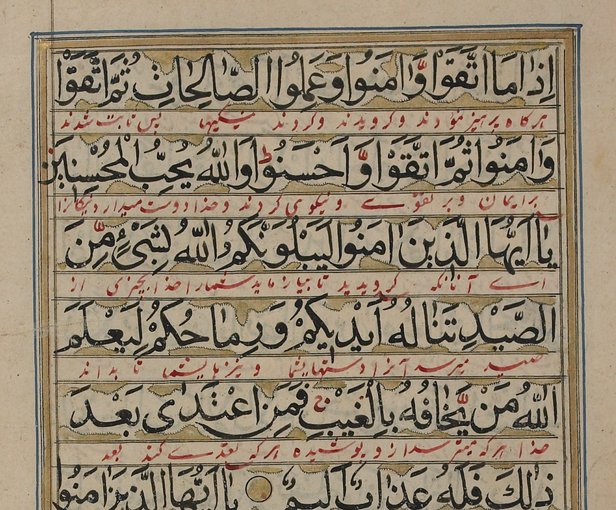 إِذَا مَا اتَّقَوْا وَّآمَنُوا وَعَمِلُوا الصَّالِحَاتِ ثُمَّ اتَّقَوْا
هرگاه پرهیز نمودند و گرویدند و کردند نیکیها پس ثابت شدند
وَآمَنُوا ثُمَّ اتَّقَوْا وَّأَحْسَنُوا وَاللَّهُ يُحِبُّ الْمُحْسِنِينَ
بر ایمان و بر تقوی و نیکوی کردند و خدا دوست میدارد نیکانرا
يَا أَيُّهَا الَّذِينَ آمَنُوا لَيَبْلُوَنَّكُمُ اللَّهُ بِشَيْءٍ مِّنَ
ای آنانکه گرویدید خدا بچیزی از
الصَّيْدِ تَنَالُهُ أَيْدِيكُمْ وَرِمَاحُكُمْ لِيَعْلَمَ
صید میرسد آنرا دستهایشما و نیزهایشما تا بداند
اللَّهُ مَنْ يَّخَافُهُ بِالْغَيْبِ فَمَنِ اعْتَدَى بَعْدَ
خدا هر که میترسد از و پوشیده هر که تعدی کند بعد
ذَلِكَ فَلَهُ عَذَابٌ أَلِيمٌ يَا أَيُّهَا الَّذِينَ آمَنُوا